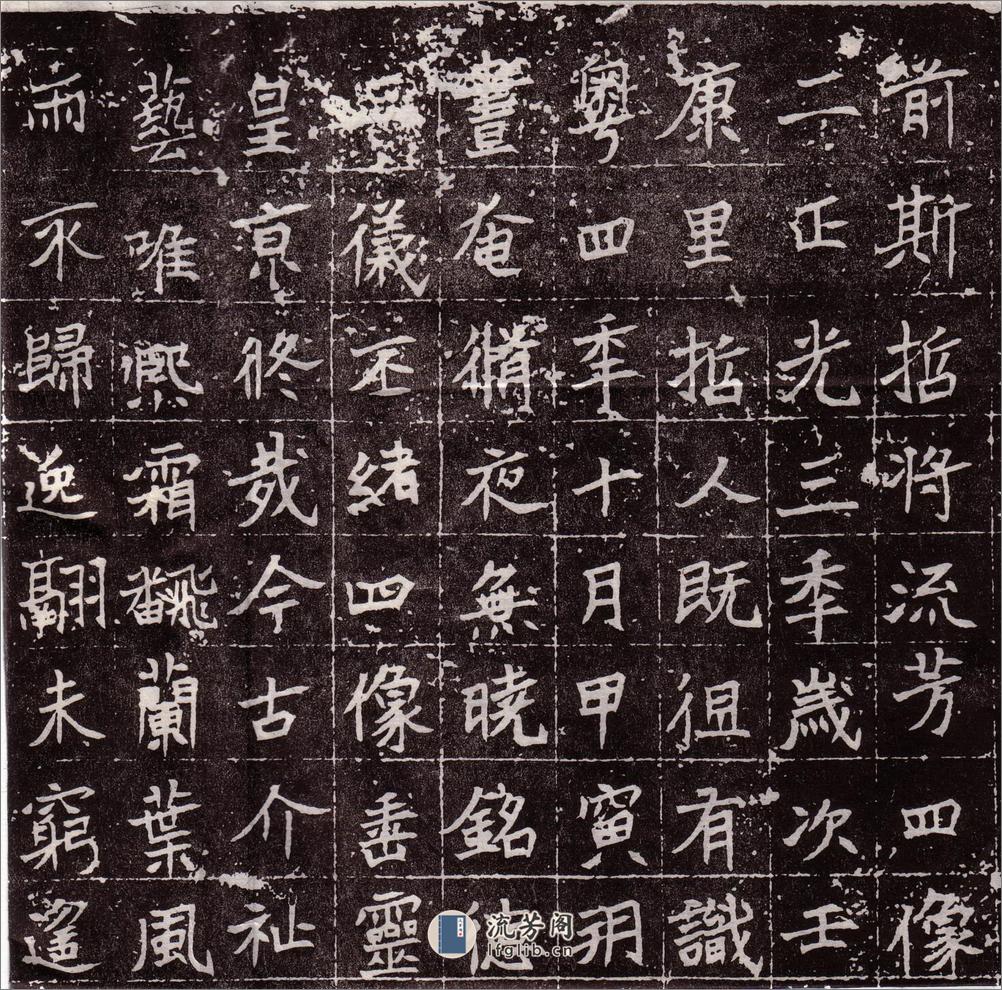 前斯哲將流芳四像
二正光三年歲次壬
康里哲人既徂有識
粵四年十月甲寅朔
晝奄脩夜無曉銘德
儀丕緒四像垂靈
皇京終哉今古介祉
藝唯熙霜飜蘭葉風
不歸逸翮未窮遥
流芳阁
lfglib.cn